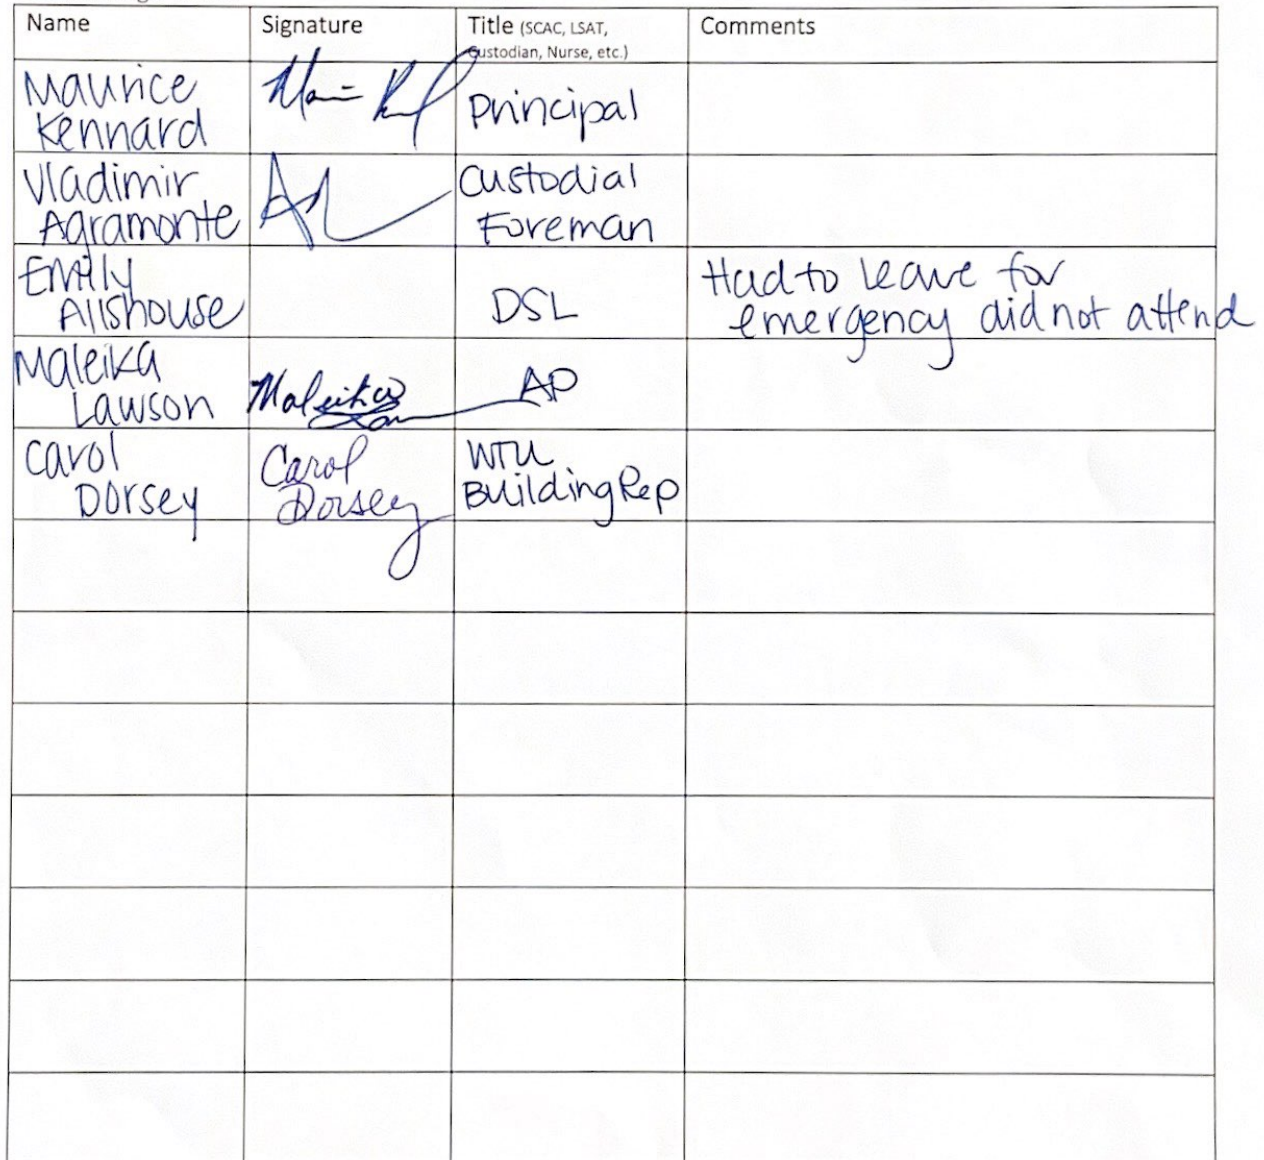 Name Signature Title (SCAC, LSAT, Comments
Custodian, Nurse, etc.)
Maurice
Kennard
Principal
Vladimir
Agramonte
Custodial
Foreman
Emily
Allshouse
DSL
Had to leave for
emergency did not attend
Maleika
Lawson
Maleika
AP
Carol
Dorsey
Carol
Dorsey
WTU
Building Rep